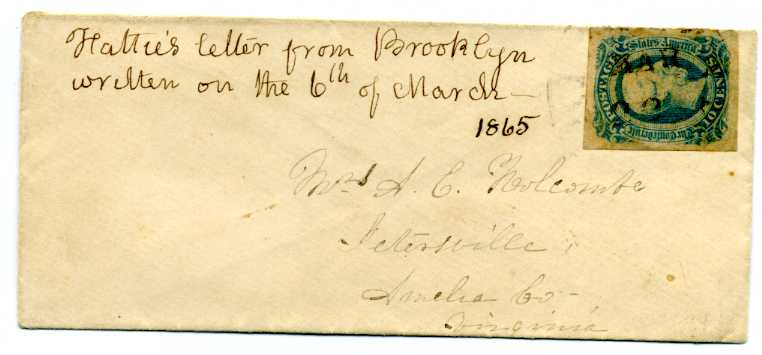 Hattie's letter from Brooklyn
written on the 6th of March—
1865
Mrs A. E. Holcombe
Jetersville,
Amelia Co—
Virginia
States America
POSTAGE
The Confederate
MAR